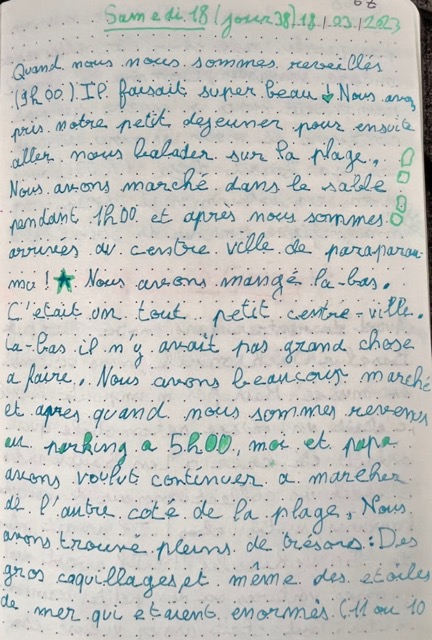 Samedi 18 (jour 38) 18.03.2023
Quand nous nous sommes reveillés
(9h00). Il faisait super beau ! Nous avons
pris notre petit dejeuner pour ensuite
aller nous balader sur la plage.
Nous avons marché dans le sable
pendant 1h00 et après nous sommes
arrivés au centre ville de paraparau-
mu ! ★ Nous avons mangé la-bas.
C'était un tout petit centre-ville.
La-bas il n'y avait pas grand chose
a faire. Nous avons beaucoup marché
et apres quand nous sommes revenus
au parking a 5h00, moi et papa
avons voulut continuer a marcher
de l'autre coté de la plage. Nous
avons trouvé pleins de trésors : Des
gros coquillages et même des etoiles
de mer qui etaient enormes. (11 ou 10